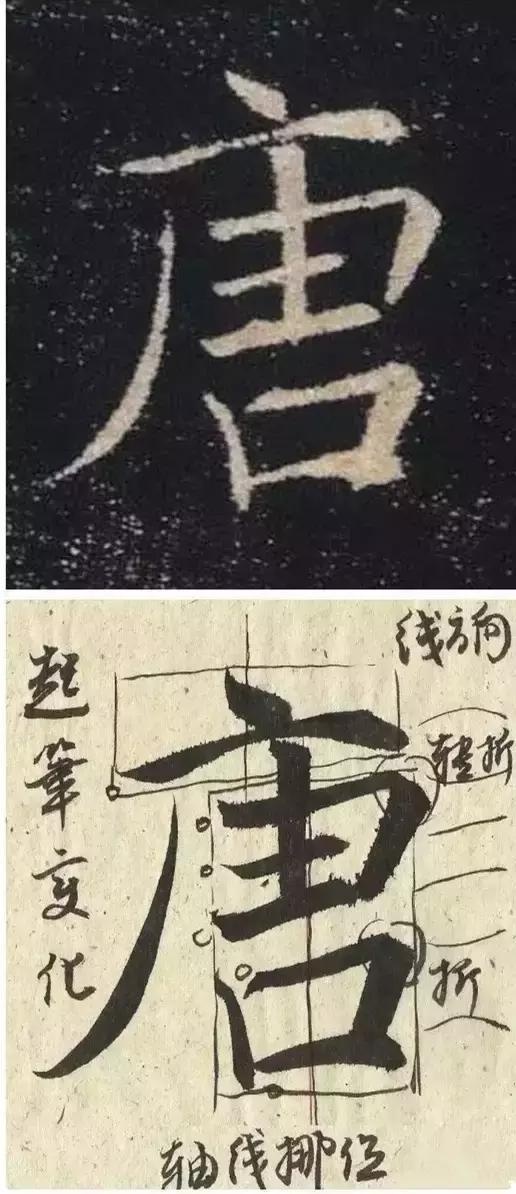 唐
线方向
起筆变化
唐
转折
折
轴线挪位